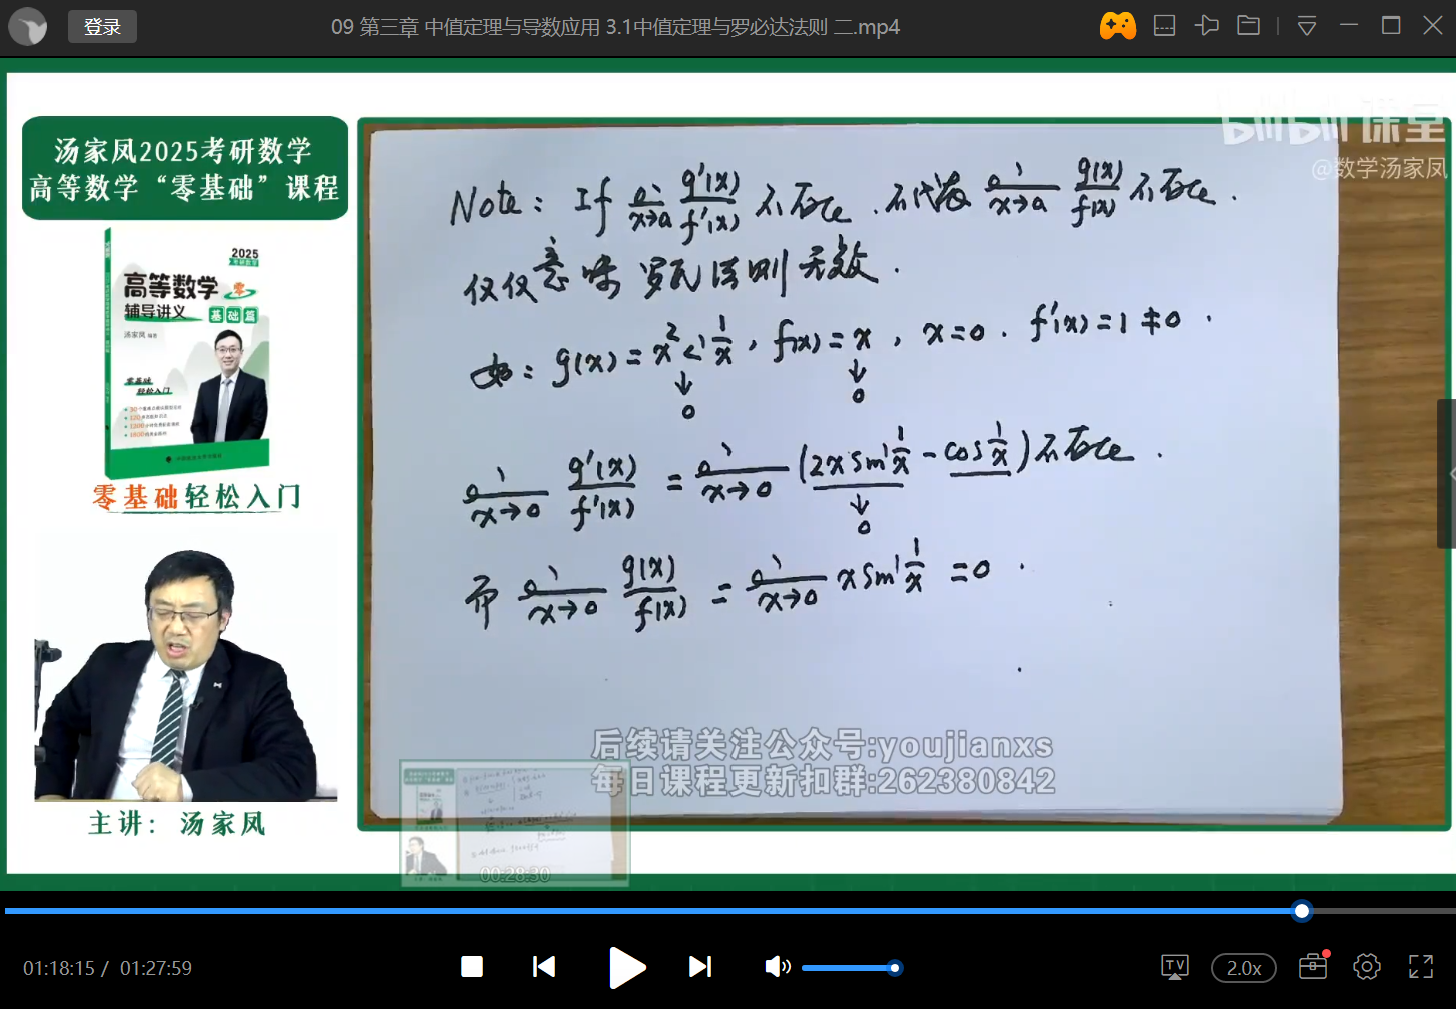 登录
09 第三章 中值定理与导数应用 3.1中值定理与罗必达法则 二.mp4
bilibili课堂
@数学汤家凤
汤家凤2025考研数学
高等数学“零基础”课程
2025
高等数学
零
辅导讲义
基础篇
汤家凤 编著
零基础
轻松入门
零基础轻松入门
主讲：汤家凤
Note: If lim x→a g'(x)/f'(x) 不存在. 不代表 lim x→a g(x)/f(x) 不存在.
仅仅意味 罗氏法则无效.
如: g(x) = x² sin 1/x, f(x) = x, x=0. f'(x) = 1 ≠ 0.
↓ ↓
0 0
lim x→0 g'(x)/f'(x) = lim x→0 (2x sin 1/x - cos 1/x) 不存在.
↓
0
而 lim x→0 g(x)/f(x) = lim x→0 x sin 1/x = 0.
后续请关注公众号:youjianxs
每日课程更新扣群:262380842
00:28:30
01:18:15 / 01:27:59
TV
2.0x